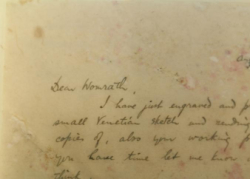 Dear Wonrath,
I have just engraved and p
small Venetian sketch and sending
copies of, also your working p
you have time let me know
think